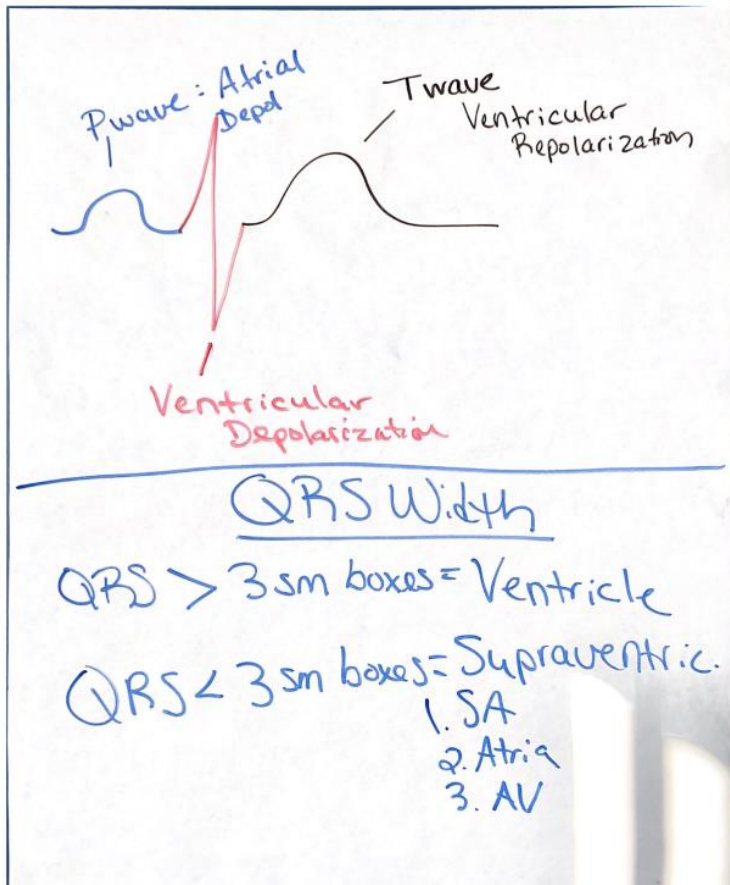 P wave : Atrial
Depol
T wave
Ventricular
Repolarization
Ventricular
Depolarization
QRS Width
QRS > 3 sm boxes = Ventricle
QRS < 3 sm boxes = Supraventric.
1. SA
2. Atria
3. AV